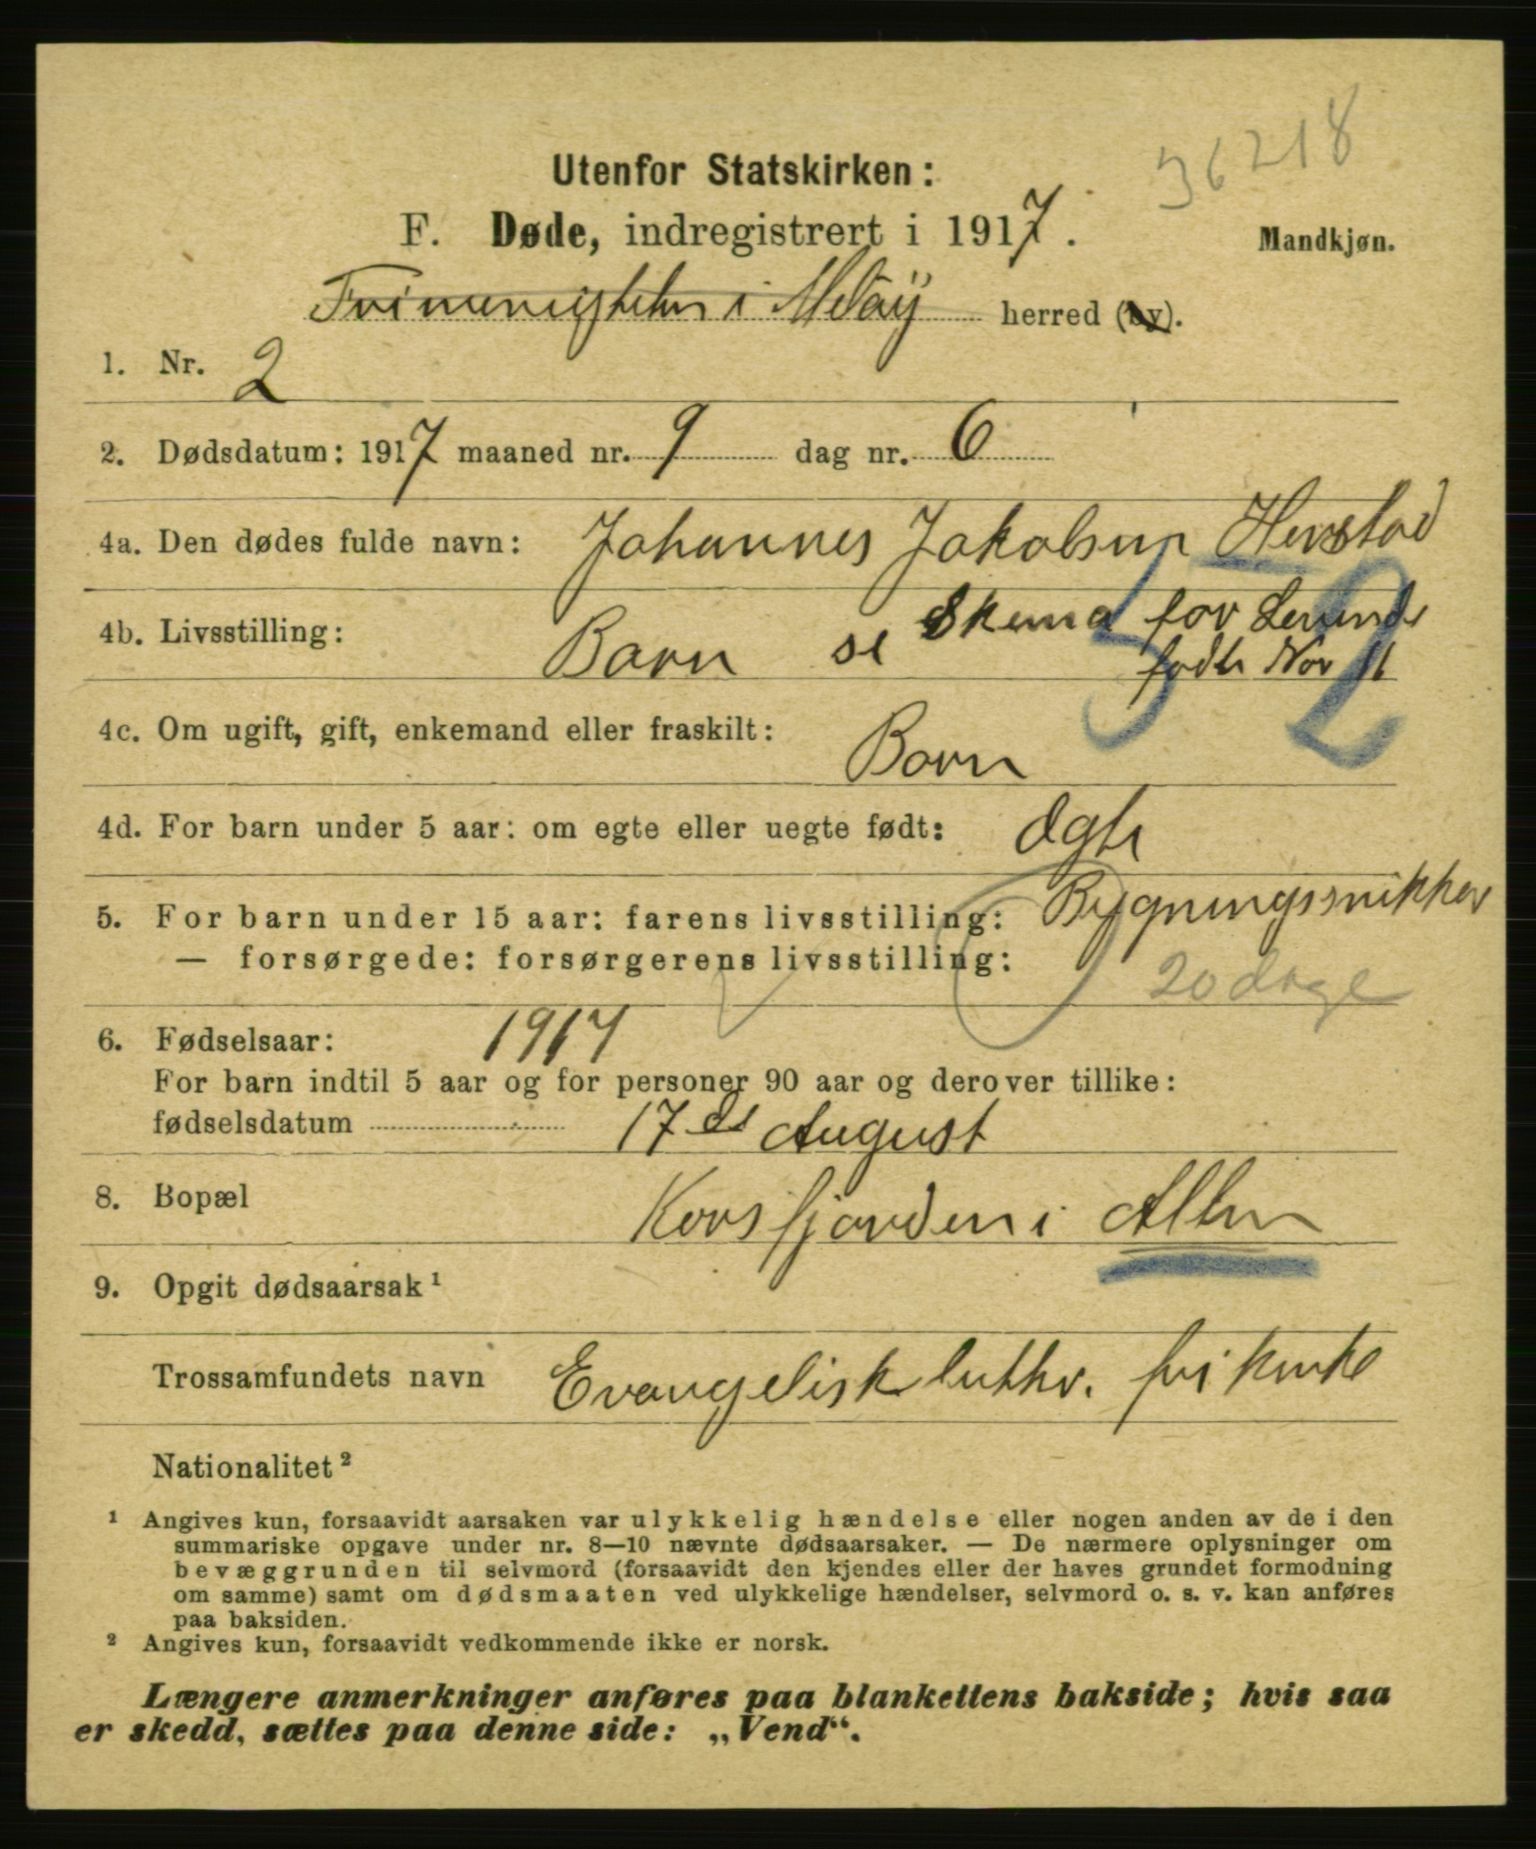 36218
Utenfor Statskirken:
F. Døde, indregistrert i 1917.
Mandkjøn.
i herred (by).
1. Nr. 2
2. Dødsdatum: 1917 maaned nr. 9 dag nr. 6
4a. Den dødes fulde navn: Johannes Jakobsen
4b. Livsstilling: Barn se Skema for
fødte Nov 11
52
4c. Om ugift, gift, enkemand eller fraskilt: Barn
4d. For barn under 5 aar: om egte eller uegte født: Ægte
5. For barn under 15 aar: farens livsstilling: Bygningssnikker
— forsørgede: forsørgerens livsstilling:
20 dage
6. Fødselsaar: 1917
For barn indtil 5 aar og for personer 90 aar og derover tillike:
fødselsdatum 17de August
8. Bopæl Korsfjorden i Alten
9. Opgit dødsaarsak¹
Trossamfundets navn Evangelisk luthr. frikirke
Nationalitet²
¹ Angives kun, forsaavidt aarsaken var ulykkelig hændelse eller nogen anden av de i den
summariske opgave under nr. 8—10 nævnte dødsaarsaker. — De nærmere oplysninger om
bevæggrunden til selvmord (forsaavidt den kjendes eller der haves grundet formodning
om samme) samt om dødsmaaten ved ulykkelige hændelser, selvmord o. s. v. kan anføres
paa baksiden.
² Angives kun, forsaavidt vedkommende ikke er norsk.
Længere anmerkninger anføres paa blankettens bakside; hvis saa
er skedd, sættes paa denne side: „Vend“.